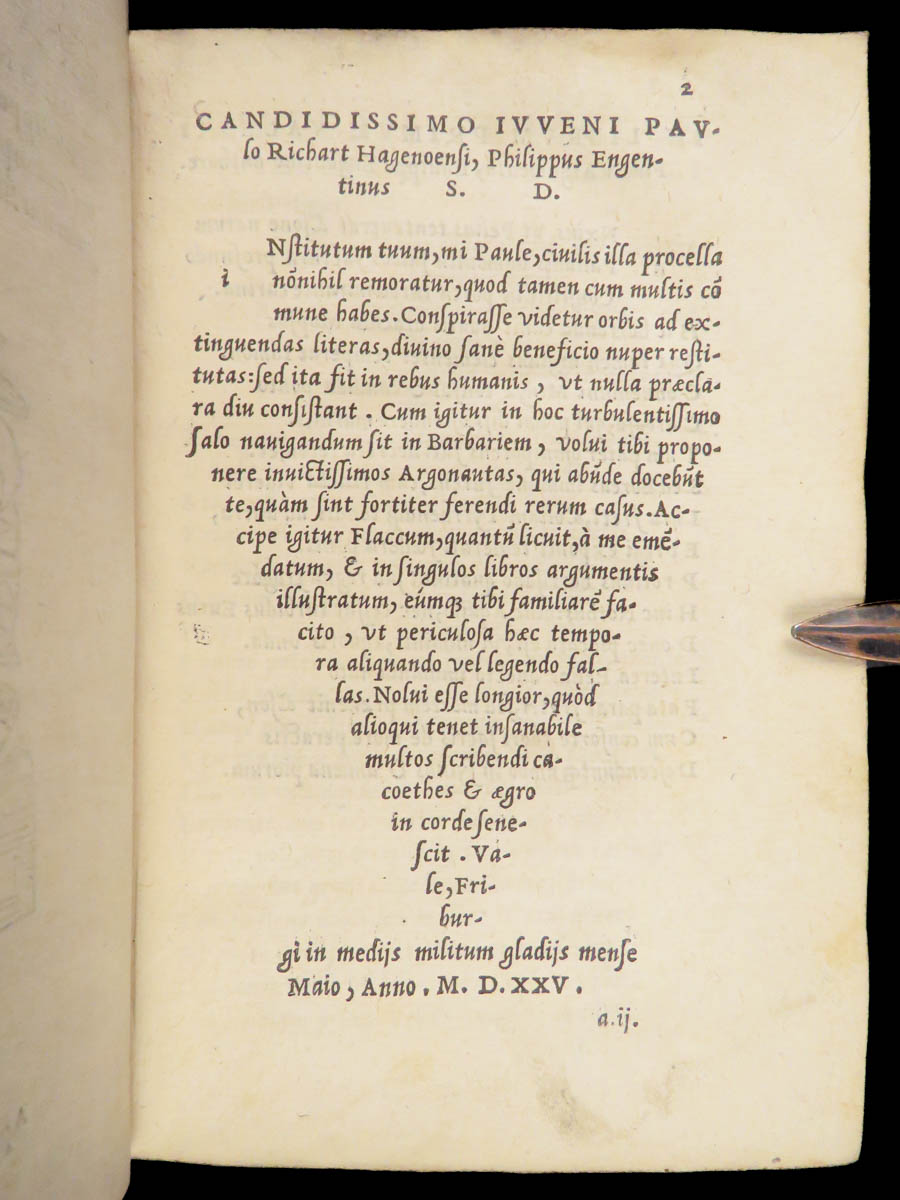 2
CANDIDISSIMO IVVENI PAV-
lo Richart Hagenoenſi, Philippus Engen-
tinus S. D.
Nſtitutum tuum, mi Paule, ciuilis illa procella
i nõnihil remoratur, quod tamen cum multis cõ
mune habes. Conſpiraſſe videtur orbis ad ex-
tinguendas literas, diuino ſanè beneficio nuper reſti-
tutas: ſed ita fit in rebus humanis, vt nulla præcla-
ra diu conſiſtant. Cum igitur in hoc turbulentiſſimo
ſalo nauigandum ſit in Barbariem, volui tibi propo-
nere inuictiſſimos Argonautas, qui abũde docebũt
te, quàm ſint fortiter ferendi rerum caſus. Ac-
cipe igitur Flaccum, quantũ licuit, à me emẽ-
datum, & in ſingulos libros argumentis
illuſtratum, eúmqꝫ tibi familiarẽ fa-
cito, vt periculoſa hæc tempo-
ra aliquando vel legendo fal-
las. Nolui eſſe longior, quòd
alioqui tenet inſanabile
multos ſcribendi ca-
coethes & ægro
in corde ſene-
ſcit. Va-
le, Fri-
bur-
gi in medijs militum gladijs menſe
Maio, Anno. M. D. XXV.
a.ij.